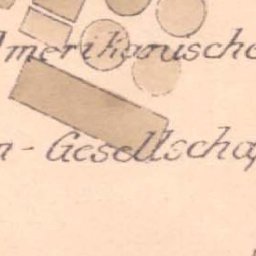 Amerikanische
n-Gesellschaf